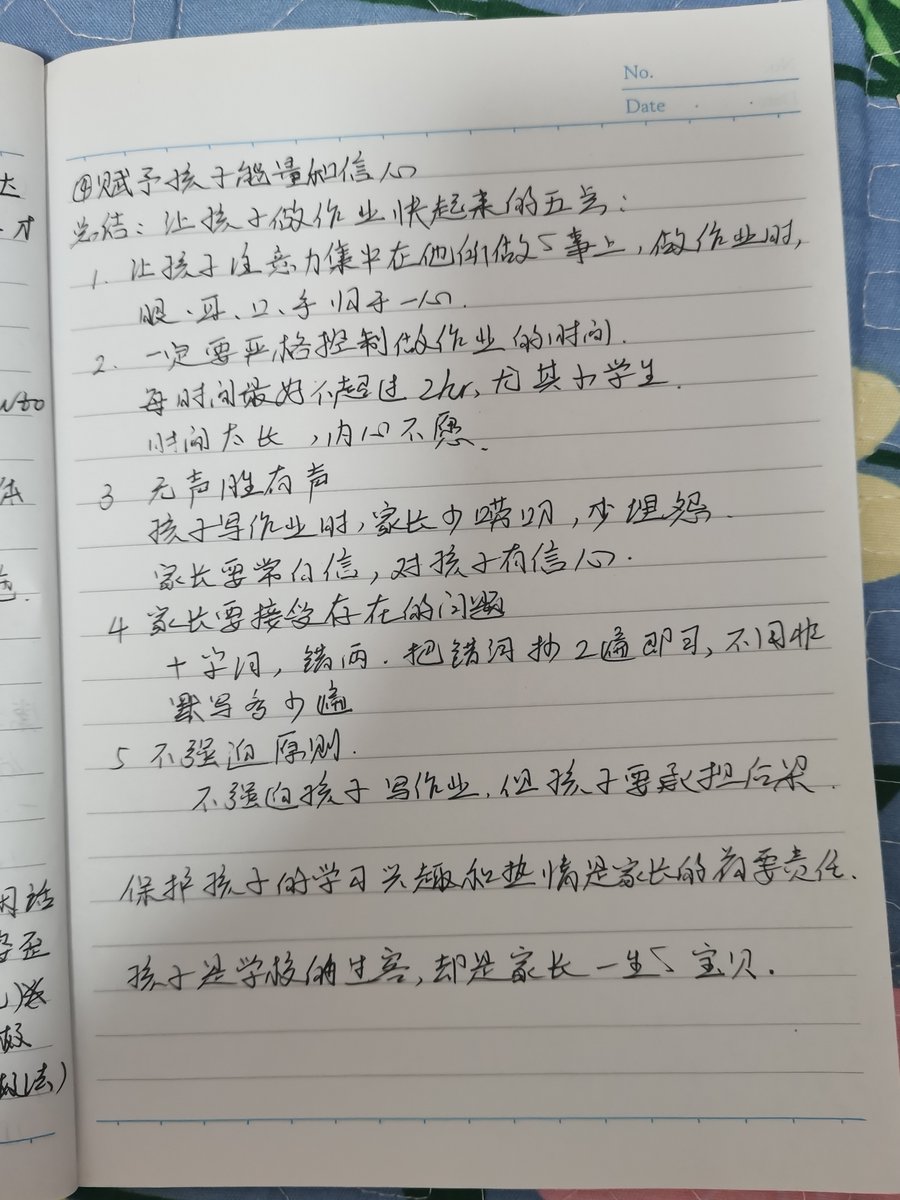 No.
Date
④赋予孩子能量和信心
总结：让孩子做作业快起来的五点：
1. 让孩子注意力集中在他所做的事上，做作业时，
眼、耳、口、手归于一心.
2. 一定要严格控制做作业的时间.
每时间最好不超过2hr, 尤其小学生.
时间太长，内心不愿.
3 无声胜有声
孩子写作业时，家长少唠叨，少埋怨.
家长要常自信，对孩子有信心.
4 家长要接受存在的问题
十字词，错两. 把错词抄2遍即可，不用
默写多少遍
5 不强迫原则.
不强迫孩子写作业，但孩子要承担后果.
保护孩子的学习兴趣和热情是家长的首要责任.
孩子是学校的过客，却是家长一生的宝贝.